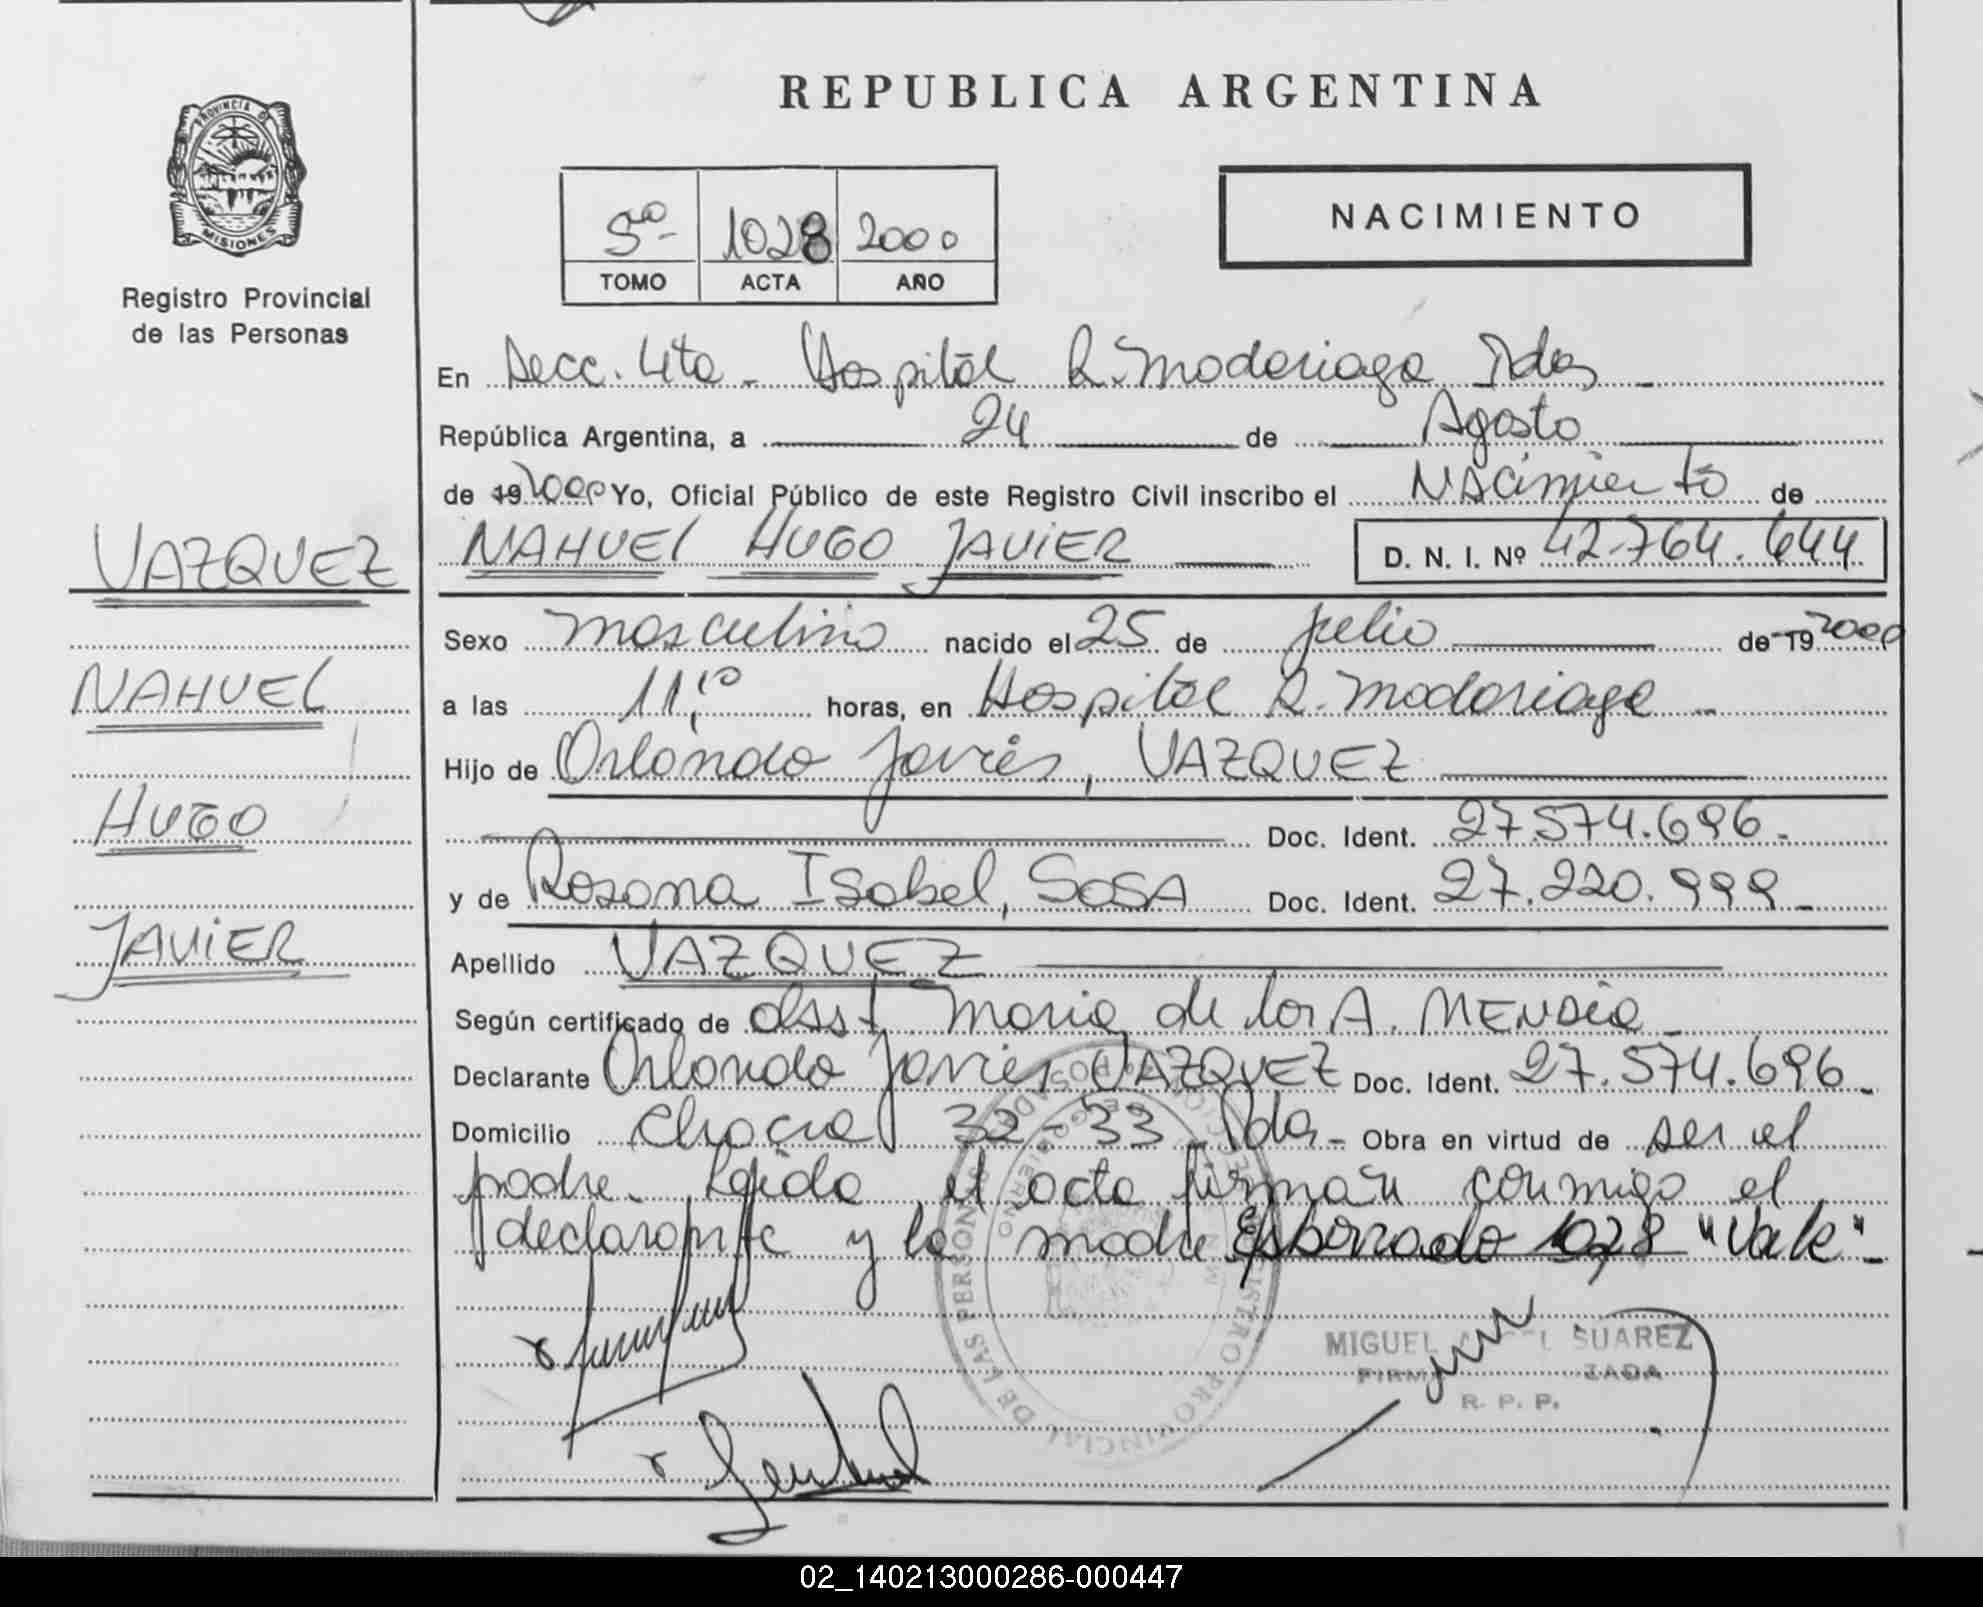 REPUBLICA ARGENTINA
PROVINCIA DE
MISIONES
Registro Provincial
de las Personas
5º 1028 2000
TOMO ACTA AÑO
NACIMIENTO
En Secc. 4ta - Hospital R. Madariaga Pdas -
República Argentina, a 24 de Agosto
de 19 2000 Yo, Oficial Público de este Registro Civil inscribo el Nacimiento de
NAHUEL HUGO JAVIER D. N. I. Nº 42.764.644
VAZQUEZ
NAHUEL
HUGO
JAVIER
Sexo masculino nacido el 25 de julio de 19 2000
a las 11,10 horas, en Hospital R. Madariaga -
Hijo de Orlando Javier, VAZQUEZ
Doc. Ident. 27.574.696.-
y de Rosana Isabel, SOSA Doc. Ident. 27.220.999 -
Apellido VAZQUEZ
Según certificado de obst. Maria de los A. MENDEZ -
Declarante Orlando Javier VAZQUEZ Doc. Ident. 27.574.696 -
Domicilio Chacra 32-33 - Pdas - Obra en virtud de ser el
padre. Leida el acta firman conmigo el
declarante y la madre Esborrado 1028 "Vale" -
MIGUEL SUAREZ
R. P. P.
REGISTRO PROVINCIAL DE LAS PERSONAS
02_140213000286-000447